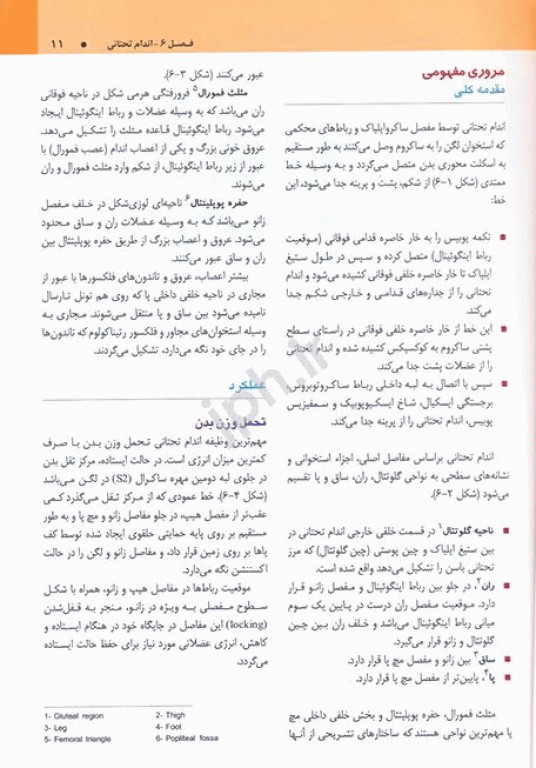 فصل ۶- اندام تحتانی ● ۱۱
مروری مفهومی
مقدمه کلی
اندام تحتانی توسط مفصل ساکروایلیاک و رباط‌های محکمی
که استخوان لگن را به ساکروم وصل می‌کنند به طور مستقیم
به اسکلت محوری بدن متصل می‌گردد و به وسیله خط
ممتدی (شکل ۱-۶) از شکم، پشت و پرینه جدا می‌شود، این
خط:
■ تکمه پوبیس را به خار خاصره قدامی فوقانی (موقعیت
رباط اینگوئینال) متصل کرده و سپس در طول ستیغ
ایلیاک تا خار خاصره خلفی فوقانی کشیده می‌شود و اندام
تحتانی را از جداره‌های قدامی و خارجی شکم جدا
می‌کند.
■ این خط از خار خاصره خلفی فوقانی در راستای سطح
پشتی ساکروم به کوکسیکس کشیده شده و اندام تحتانی
را از عضلات پشت جدا می‌کند.
■ سپس با اتصال به لبه داخلی رباط ساکروتوبروس،
برجستگی ایسکیال، شاخ ایسکیوپوبیک و سمفیزیس
پوبیس، اندام تحتانی را از پرینه جدا می‌کند.
اندام تحتانی براساس مفاصل اصلی، اجزاء استخوانی و
نشانه‌های سطحی به نواحی گلوتئال، ران، ساق و پا تقسیم
می‌شود (شکل ۲-۶).
■ ناحیه گلوتئال۱ در قسمت خلفی خارجی اندام تحتانی در
بین ستیغ ایلیاک و چین پوستی (چین گلوتئال) که مرز
تحتانی باسن را تشکیل می‌دهد واقع شده است.
■ ران۲، در جلو بین رباط اینگوئینال و مفصل زانو قرار
دارد. موقعیت مفصل ران درست در پایین یک سوم
میانی رباط اینگوئینال می‌باشد و خلف ران بین چین
گلوتئال و زانو قرار می‌گیرد.
■ ساق۳ بین زانو و مفصل مچ پا قرار دارد.
■ پا۴، پایین‌تر از مفصل مچ پا قرار دارد.
مثلث فمورال، حفره پوپلیتئال و بخش خلفی داخلی مچ
پا مهم‌ترین نواحی هستند که ساختارهای تشریحی از آنها
عبور می‌کنند (شکل ۳-۶).
مثلث فمورال۵ فرورفتگی هرمی شکل در ناحیه فوقانی
ران می‌باشد که به وسیله عضلات و رباط اینگوئینال ایجاد
می‌شود. رباط اینگوئینال قاعده مثلث را تشکیل می‌دهد.
عروق خونی بزرگ و یکی از اعصاب اندام (عصب فمورال) با
عبور از زیر رباط اینگوئینال، از شکم وارد مثلث فمورال و ران
می‌شوند.
حفره پوپلیتئال۶ ناحیه‌ای لوزی‌شکل در خلف مفصل
زانو می‌باشد که به وسیله عضلات ران و ساق محدود
می‌شود. عروق و اعصاب بزرگ از طریق حفره پوپلیتئال بین
ران و ساق عبور می‌کنند.
بیشتر اعصاب، عروق و تاندون‌های فلکسورها با عبور از
مجاری در ناحیه خلفی داخلی پا که روی هم تونل تارسال
نامیده می‌شود بین ساق و پا منتقل می‌شوند. مجاری به
وسیله استخوان‌های مجاور و فلکسور رتیناکولوم که تاندون‌ها
را در جای خود نگه می‌دارد، تشکیل می‌گردند.
عملکرد
تحمل وزن بدن
مهم‌ترین وظیفه اندام تحتانی تحمل وزن بدن با صرف
کمترین میزان انرژی است. در حالت ایستاده، مرکز ثقل بدن
در جلوی لبه دومین مهره ساکرال (S2) در لگن می‌باشد
(شکل ۴-۶). خط عمودی که از مرکز ثقل می‌گذرد کمی
عقب‌تر از مفصل هیپ، در جلو مفاصل زانو و مچ پا و به طور
مستقیم بر روی پایه حمایتی حلقوی ایجاد شده توسط کف
پاها بر روی زمین قرار داد، و مفاصل زانو و لگن را در حالت
اکستنشن نگه می‌دارد.
موقعیت رباط‌ها در مفاصل هیپ و زانو، همراه با شکل
سطوح مفصلی به ویژه در زانو، منجر به قفل‌شدن
(locking) این مفاصل در جایگاه خود در هنگام ایستاده و
کاهش، انرژی عضلانی مورد نیاز برای حفظ حالت ایستاده
می‌گردد.
1- Gluteal region 2- Thigh
3- Leg 4- Foot
5- Femoral triangle 6- Popliteal fossa
iph.ir